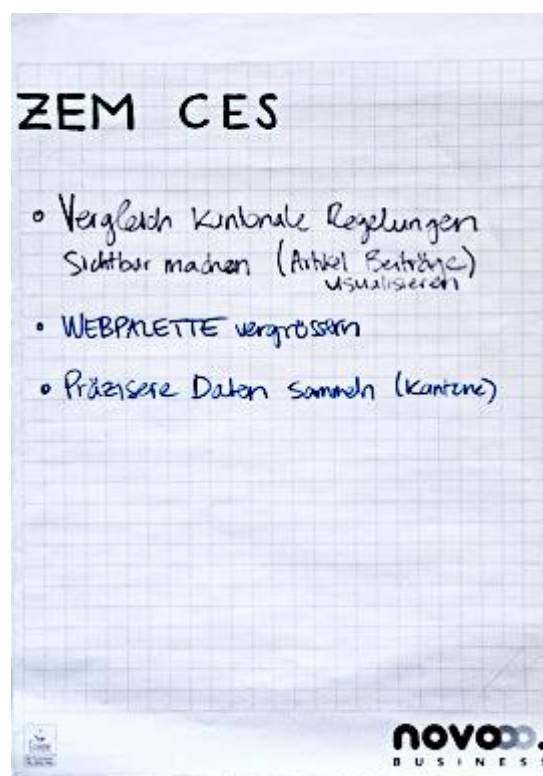 ZEM CES
• Vergleich Kantonale Regelungen
Sichtbar machen (Artikel Beiträge)
visualisieren
• WEBPALETTE vergrössern
• Präzisere Daten sammeln (Kantone)
novo
BUSINESS